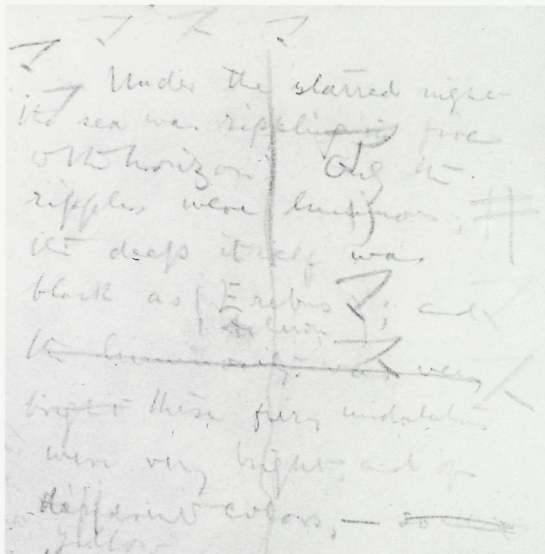 Under the starred night
the sea was rippling fire
to the horizon. Only the
ripples were luminous;
the deeps itself was
black as Erebus; and
the luminosity was very
bright these fiery undulations
were very bright, and of
different colors, —
yellow